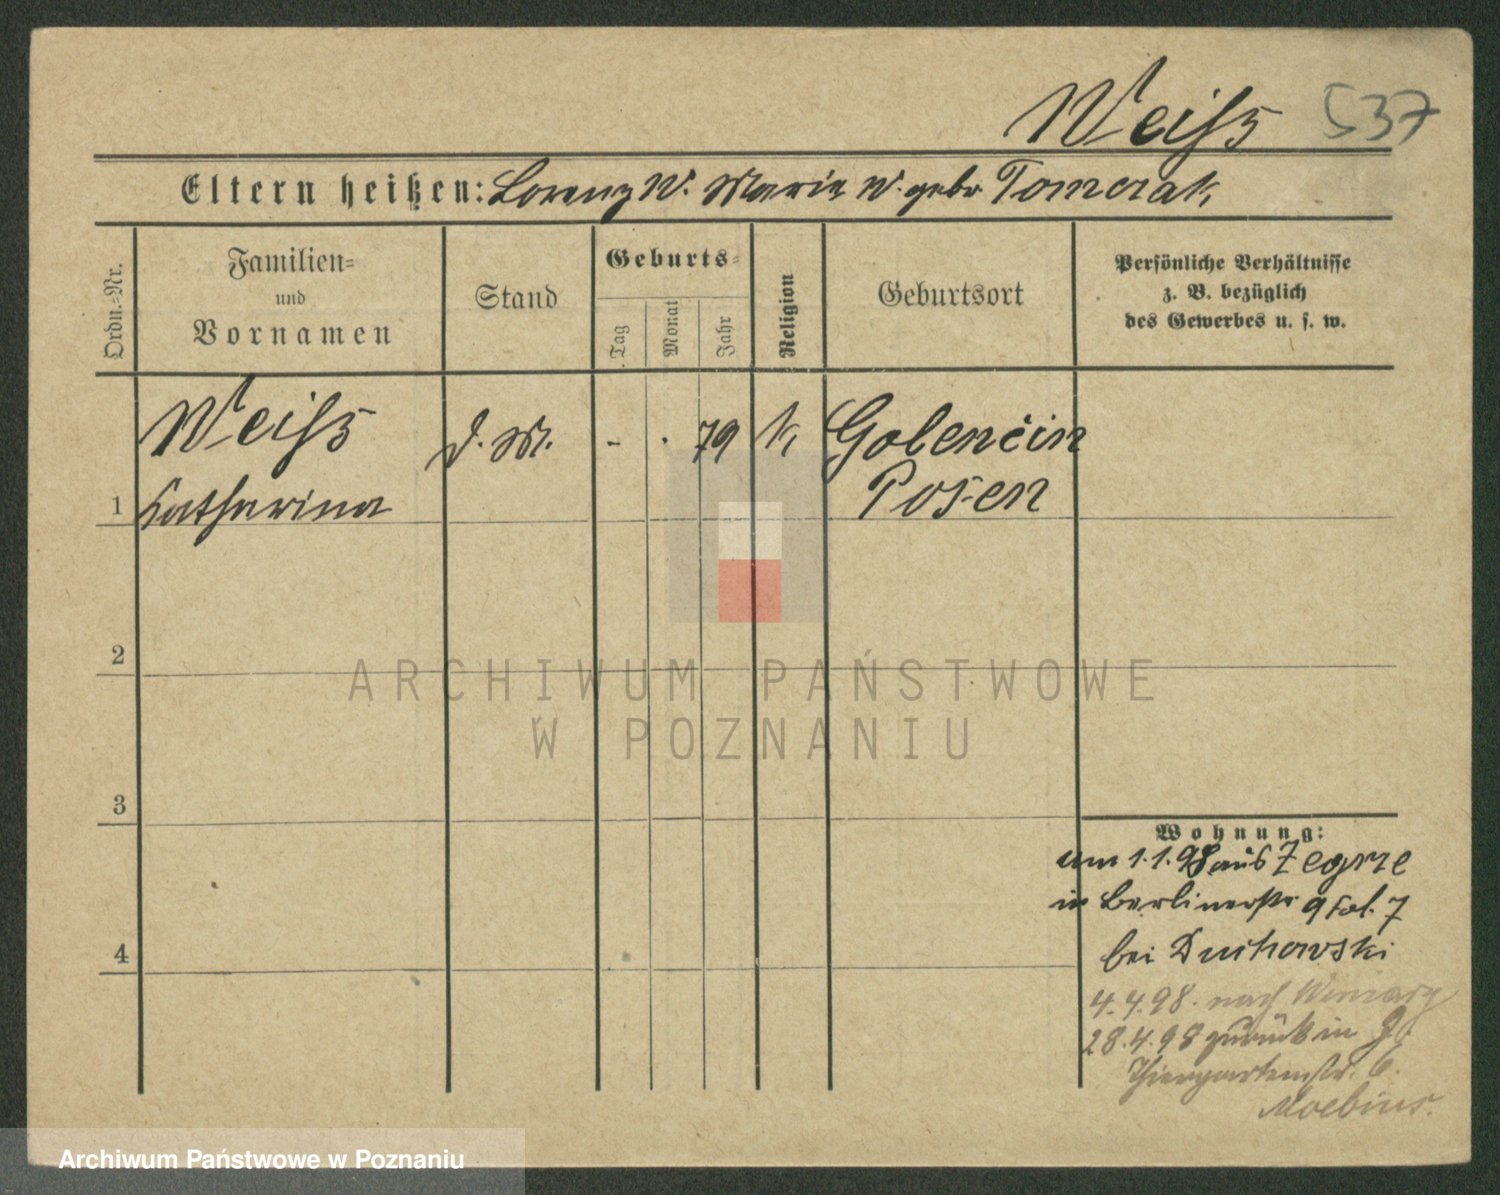 Weiß 537
Eltern heißen: Lorenz W. Marie W. gebr Tomczak,
Ordn.-Nr.
Familien-
und
Vornamen
Stand
Geburts-
Tag
Monat
Jahr
Religion
Geburtsort
Persönliche Verhältnisse
z. B. bezüglich
des Gewerbes u. s. w.
Weiß
d. M.
- . 79
k,
Golencin
Posen
1 Katharina
2
3
4
ARCHIWUM PAŃSTWOWE
W POZNANIU
Wohnung:
am 1.1.98 aus Zegrze
in Berlinerstr 9 Fol. 7
bei Duchowski
4.4.98. nach Winiary
28.4.98 zurück in
Thiergartenstr. 6.
Moebius.
Archiwum Państwowe w Poznaniu